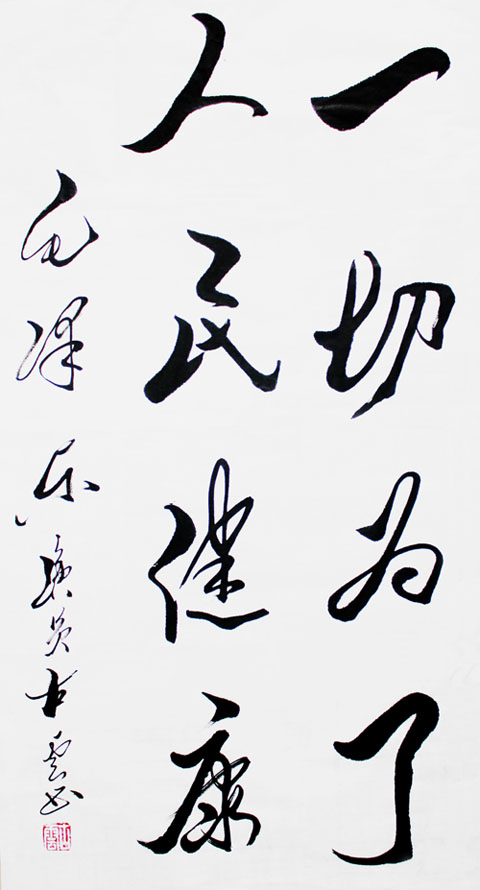 一切为了
人民健康
毛泽东